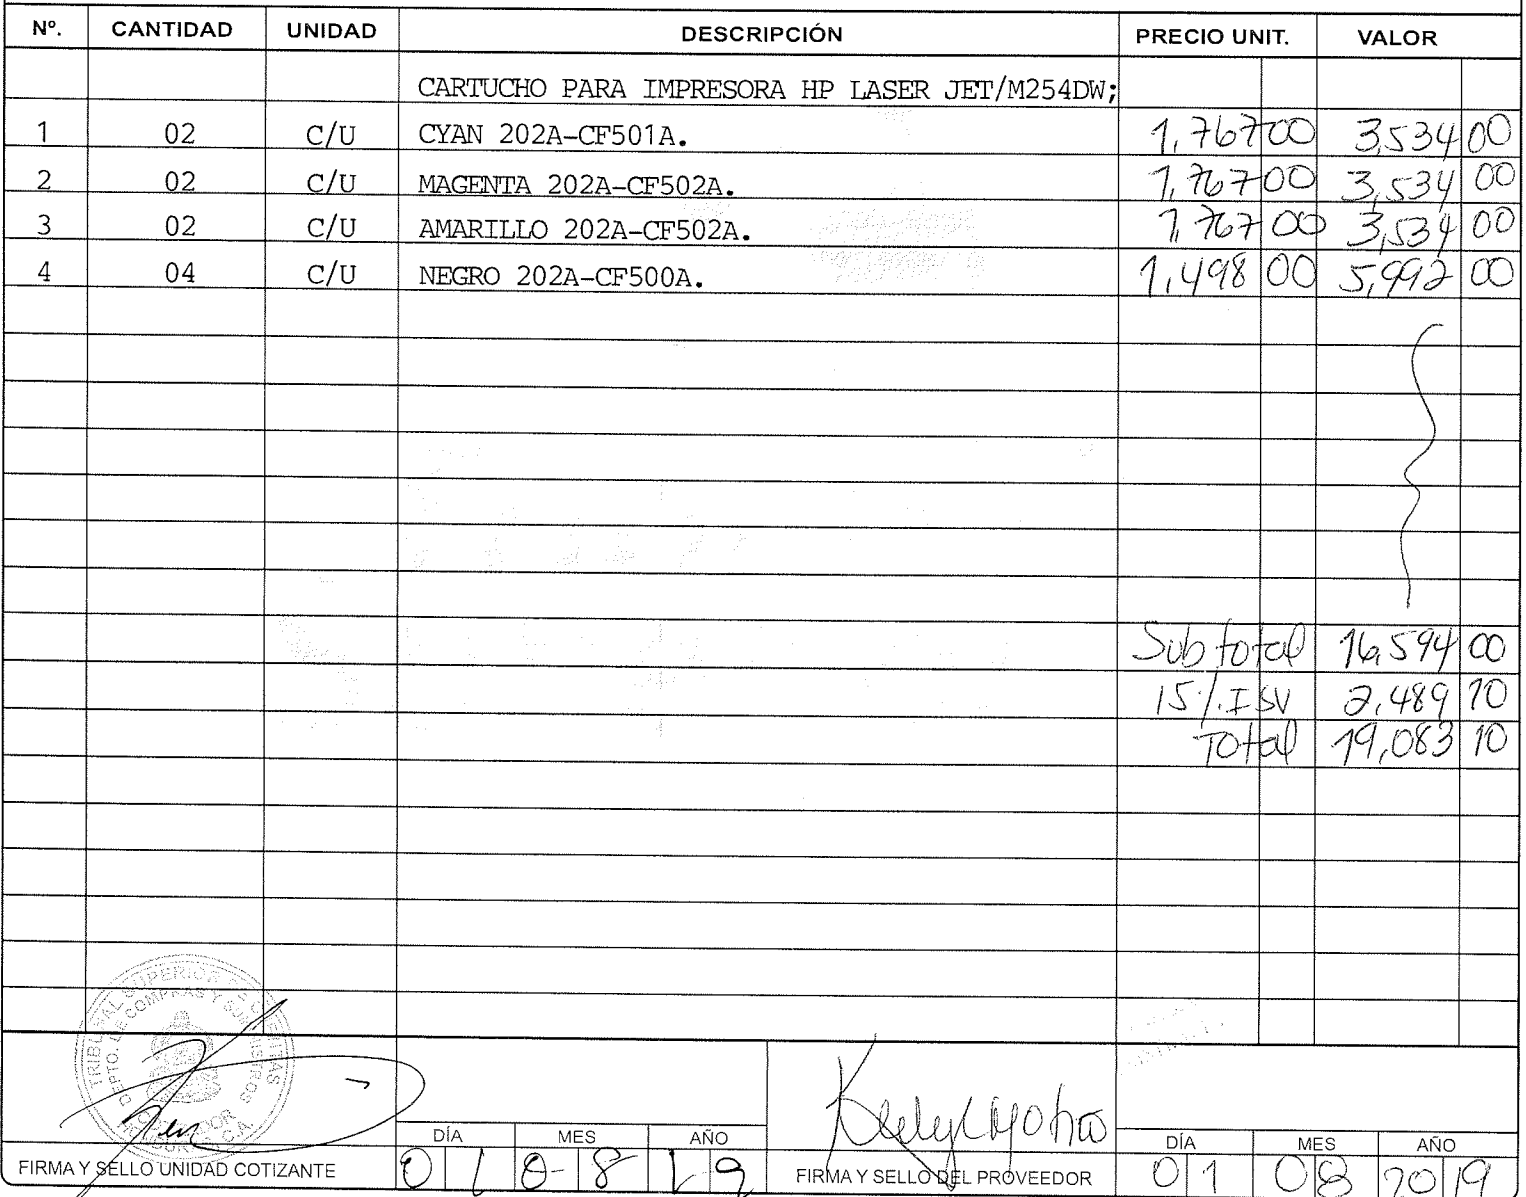 Nº. CANTIDAD UNIDAD DESCRIPCIÓN PRECIO UNIT. VALOR
CARTUCHO PARA IMPRESORA HP LASER JET/M254DW;
1 02 C/U CYAN 202A-CF501A. 1,767 00 3,534 00
2 02 C/U MAGENTA 202A-CF502A. 1,767 00 3,534 00
3 02 C/U AMARILLO 202A-CF502A. 1,767 00 3,534 00
4 04 C/U NEGRO 202A-CF500A. 1,498 00 5,992 00
Sub total 16,594 00
15%.ISV 2,489 10
Total 19,083 10
TRIBUNAL SUPERIOR DE CUENTAS
DEPTO. DE COMPRAS Y SUMINISTROS
DÍA MES AÑO DÍA MES AÑO
FIRMA Y SELLO UNIDAD COTIZANTE 01 0-8 19 FIRMA Y SELLO DEL PROVEEDOR 01 08 2019